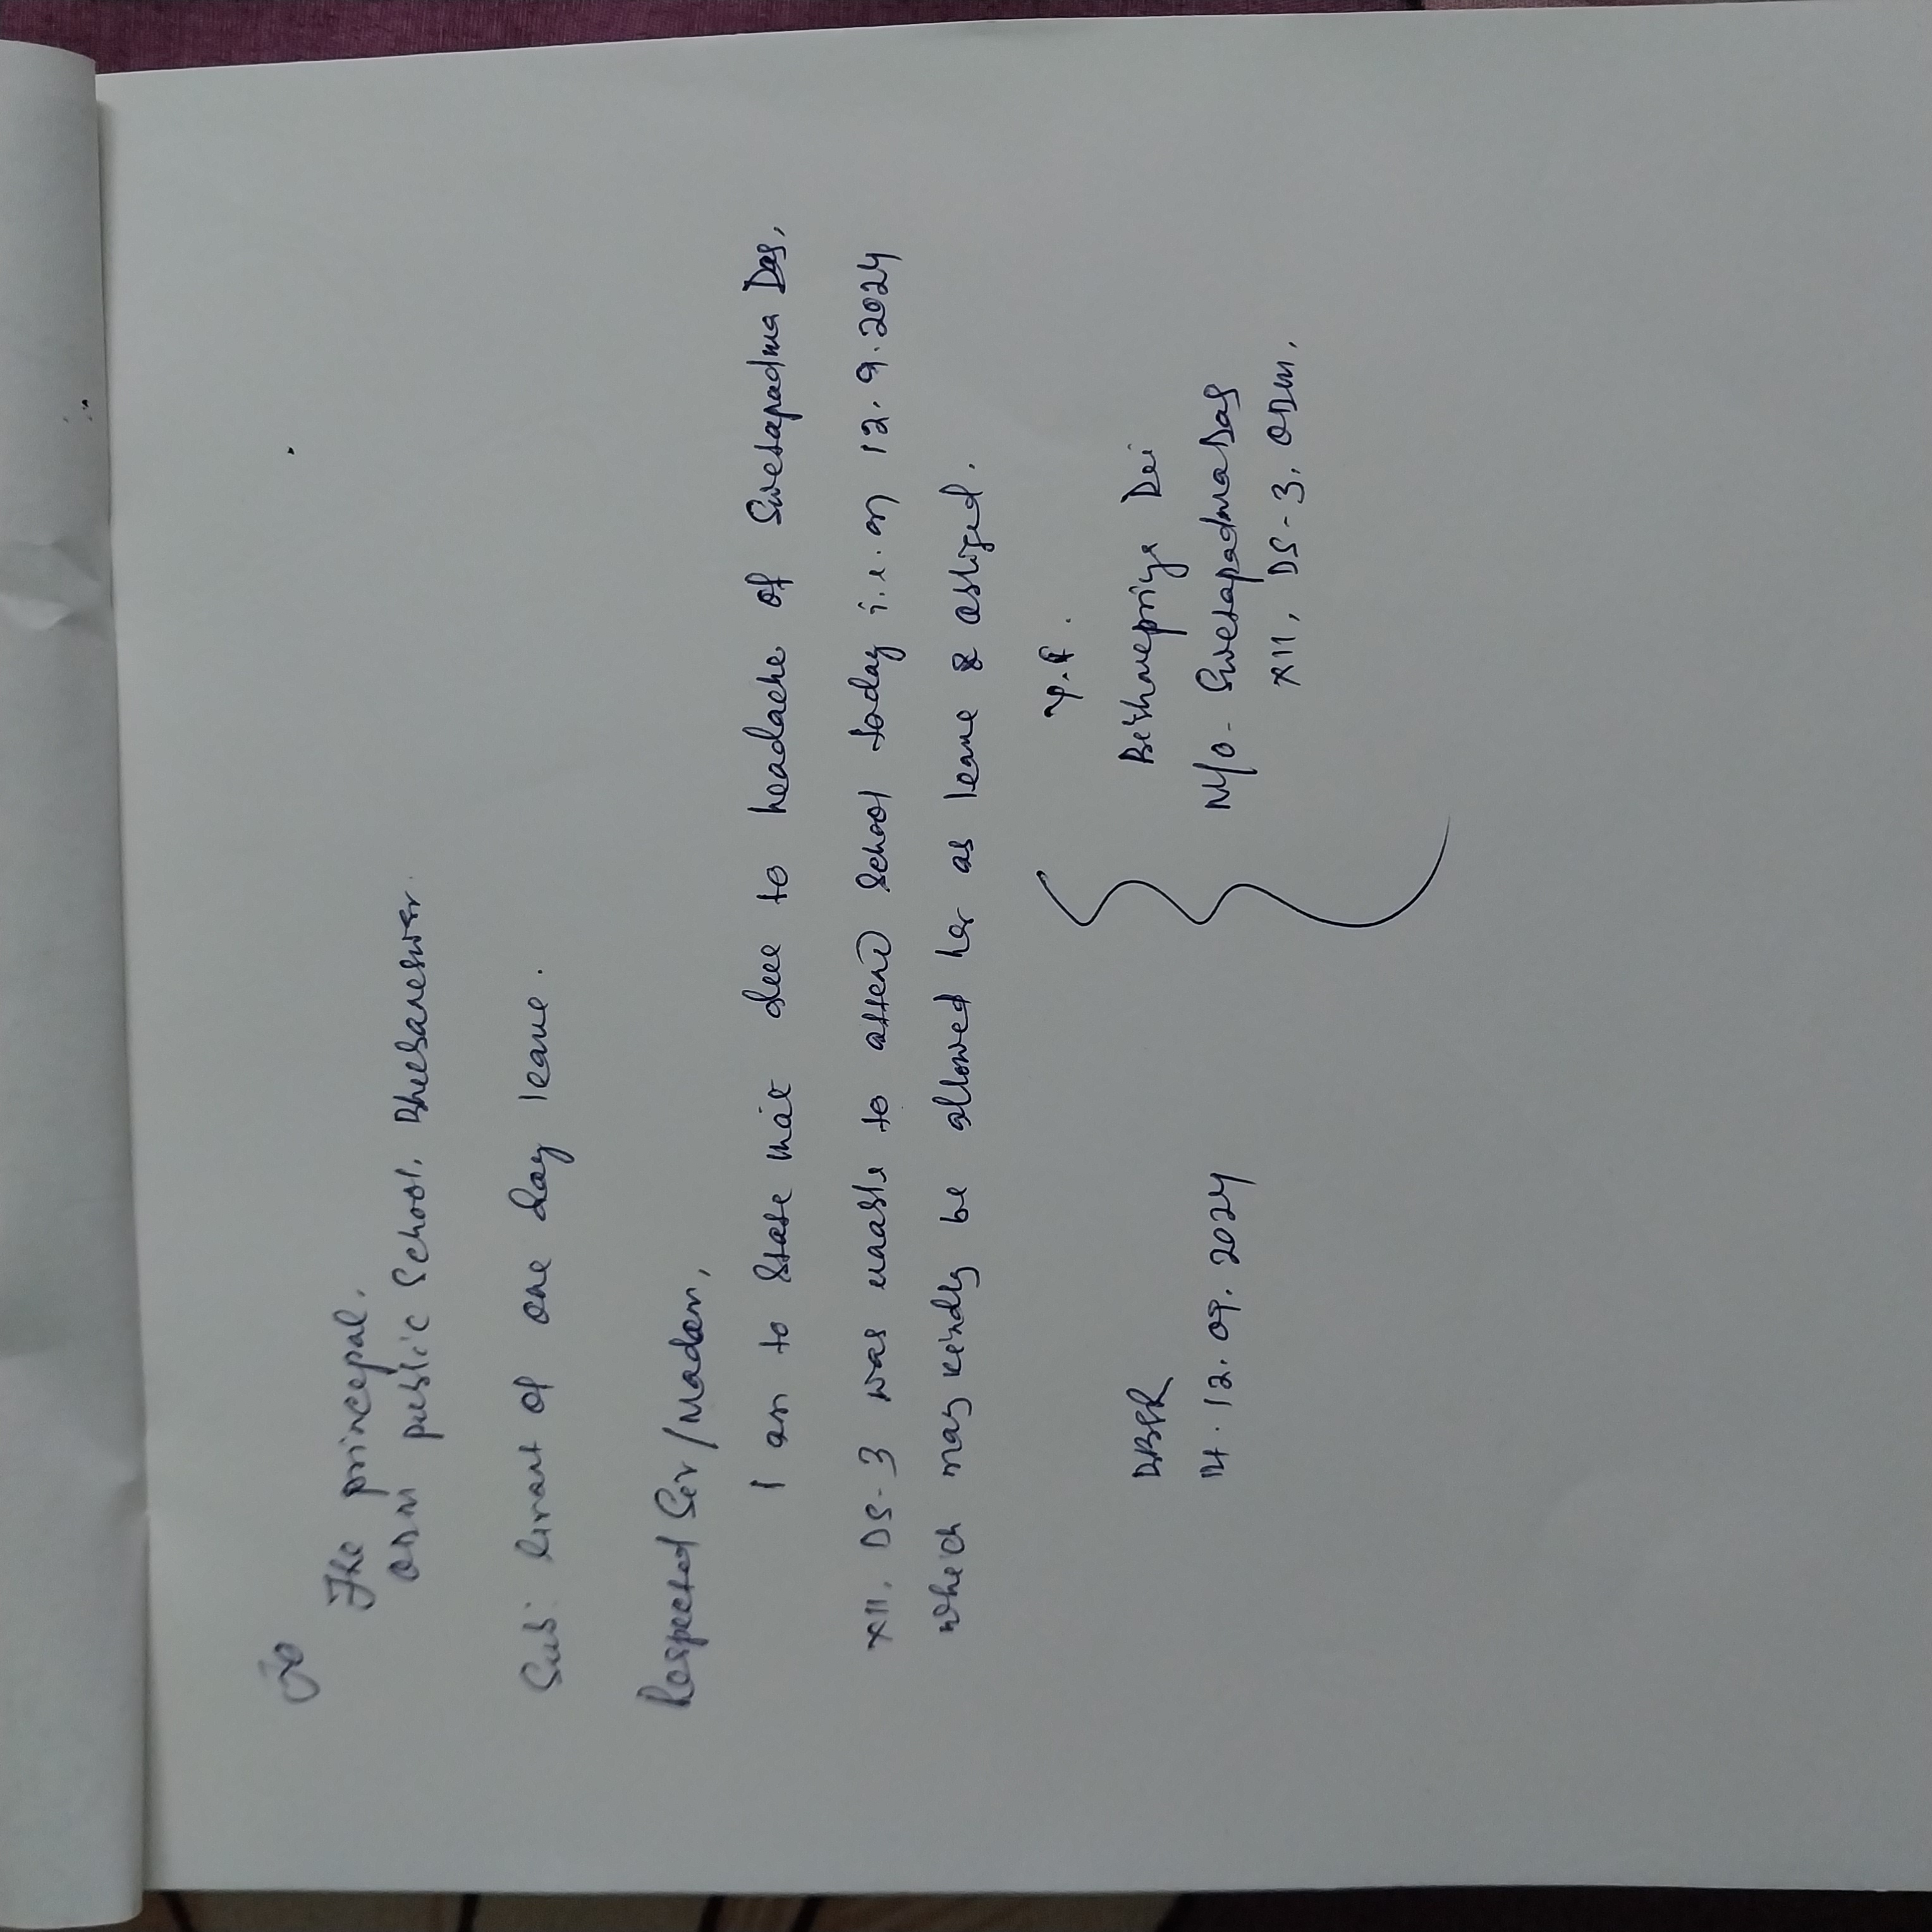 To
The principal.
ODM public School, Bhubaneswar.
Sub: Grant of one day leave.
Respected Sir/Madam,
I am to State that due to headache of Swetapadma Das,
XII, DS-3 was unable to attend school today i.e. on 12.9.2024
which may kindly be allowed her as leave & obliged.
Y.f.
Bishnupriya Dei
M/o - Swetapadma Das
XII, DS-3, ODM.
BBSR
Dt. 12.09.2024